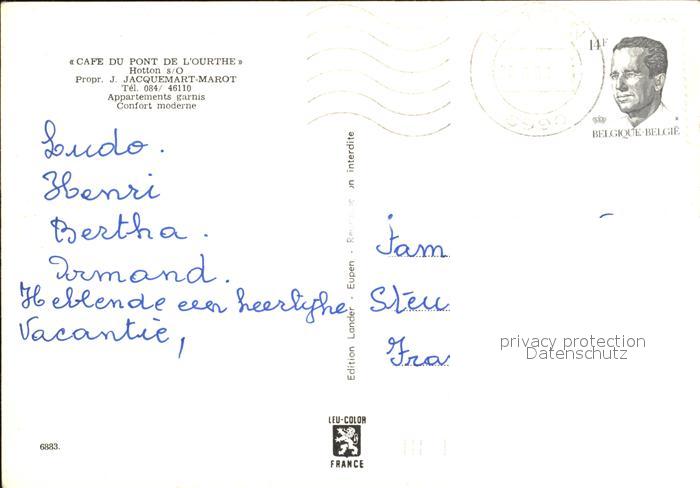 « CAFE DU PONT DE L'OURTHE »
Hotton s/O
Propr. J. JACQUEMART-MAROT
Tél. 084/ 46110
Appartements garnis
Confort moderne
Ludo.
Henri
Bertha.
Armand.
Heblende een heerlighe
Vacantie,
6883.
Edition Lander - Eupen - interdite
LEU-COLOR
FRANCE
14F
BELGIQUE-BELGIË
Fam
Steu
Fra
privacy protection
Datenschutz